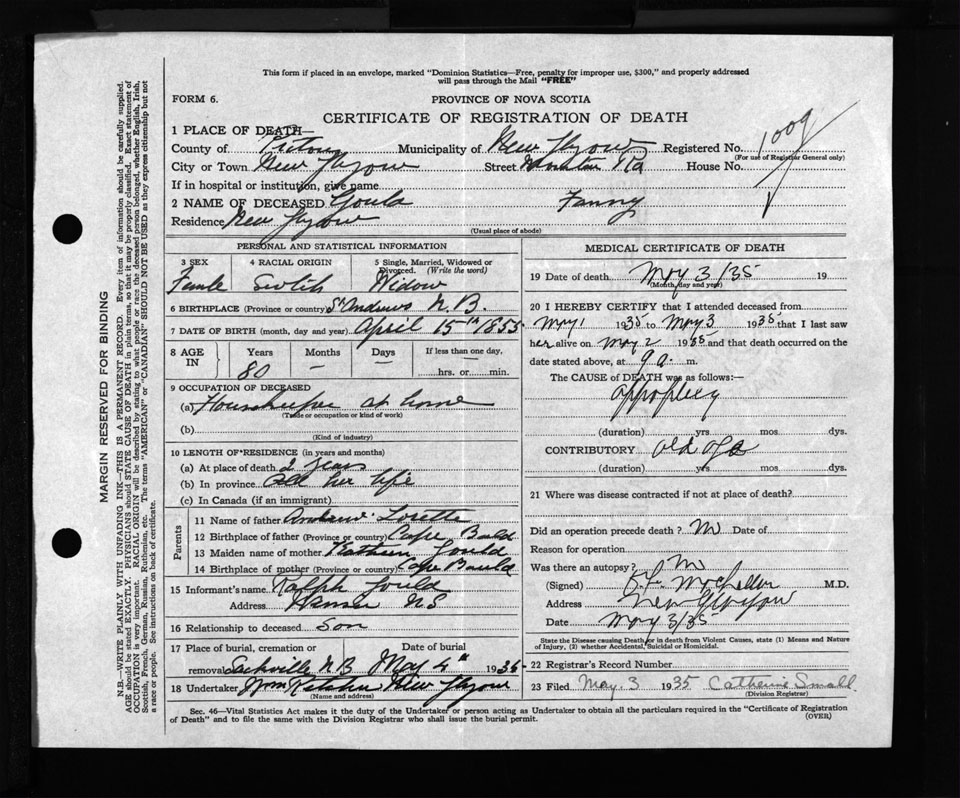 This form if placed in an envelope, marked "Dominion Statistics—Free, penalty for improper use, $300," and properly addressed
will pass through the Mail "FREE"
FORM 6.
PROVINCE OF NOVA SCOTIA
CERTIFICATE OF REGISTRATION OF DEATH
1 PLACE OF DEATH—
County of Pictou Municipality of New Glasgow Registered No. 1009
(For use of Registrar General only)
City or Town New Glasgow Street Rd House No.
If in hospital or institution, give name
2 NAME OF DECEASED Gould Fanny
Residence New Glasgow
(Usual place of abode)
PERSONAL AND STATISTICAL INFORMATION
3 SEX 4 RACIAL ORIGIN 5 Single, Married, Widowed or
Divorced. (Write the word)
Female Scotch Widow
6 BIRTHPLACE (Province or country) St Andrews N.B.
7 DATE OF BIRTH (month, day and year) April 15th 1855
8 AGE IN Years Months Days If less than one day,
80 — hrs. or min.
9 OCCUPATION OF DECEASED
(a) Housekeeper at home
(Trade or occupation or kind of work)
(b)
(Kind of industry)
10 LENGTH OF RESIDENCE (in years and months)
(a) At place of death 2 years
(b) In province All her life
(c) In Canada (if an immigrant)
Parents
11 Name of father Andrew
12 Birthplace of father (Province or country) Cape Bauld
13 Maiden name of mother Gould
14 Birthplace of mother (Province or country) Cape Bauld
15 Informant's name Ralph Gould
Address N S
16 Relationship to deceased Son
17 Place of burial, cremation or Date of burial
removal Sackville NB May 4th 1935
18 Undertaker New Glasgow
(Name and address)
MEDICAL CERTIFICATE OF DEATH
19 Date of death May 3/35 19
(Month, day and year)
20 I HEREBY CERTIFY that I attended deceased from
May 1 1935 to May 3 1935 that I last saw
her alive on May 2 1935 and that death occurred on the
date stated above, at 9 a. m.
The CAUSE of DEATH was as follows:—
Appoplecy
(duration) yrs. mos. dys.
CONTRIBUTORY old age
(duration) yrs. mos. dys.
21 Where was disease contracted if not at place of death?
Did an operation precede death? No Date of
Reason for operation
Was there an autopsy? No
(Signed) M.D.
Address New Glasgow
Date May 3/35
State the Disease causing Death or in death from Violent Causes, state (1) Means and Nature
of Injury, (2) whether Accidental, Suicidal or Homicidal.
22 Registrar's Record Number
23 Filed May. 3 1935 Catherine Small
(Division Registrar)
Sec. 46—Vital Statistics Act makes it the duty of the Undertaker or person acting as Undertaker to obtain all the particulars required in the "Certificate of Registration
of Death" and to file the same with the Division Registrar who shall issue the burial permit. (OVER)
MARGIN RESERVED FOR BINDING
N.B.—WRITE PLAINLY WITH UNFADING INK—THIS IS A PERMANENT RECORD. Every item of information should be carefully supplied.
AGE should be stated EXACTLY. PHYSICIANS should STATE CAUSE OF DEATH in plain terms, so that it may be properly classified. Exact statement of
OCCUPATION is very important. RACIAL ORIGIN will be described by stating to what people or race the deceased person belonged, whether English, Irish,
Scottish, French, German, Russian, Ruthenian, etc. The terms "AMERICAN" or "CANADIAN" SHOULD NOT BE USED as they express citizenship but not
a race or people. See instructions on back of certificate.